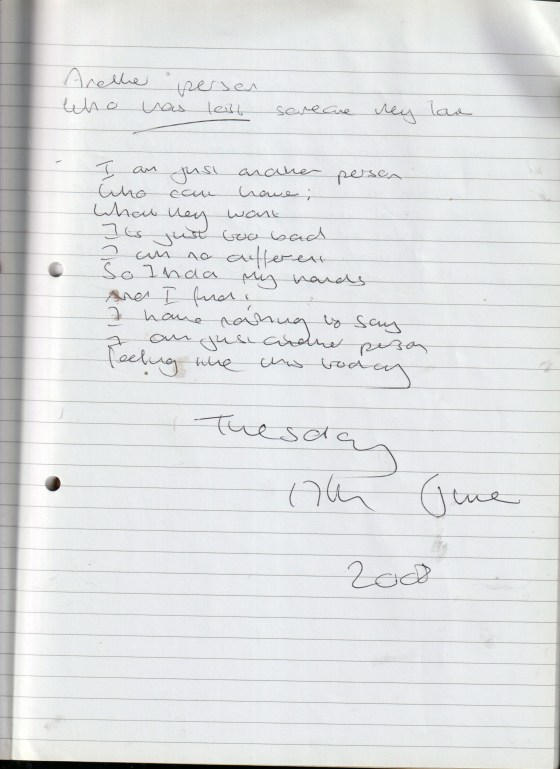 Another person
Who has lost someone they love
I am just another person
Who can have;
What they want
It's just too bad
I am no different
So I hold my hands
And I find;
I have nothing to say
I am just another person
feeling like this today
Tuesday
17th June
2008